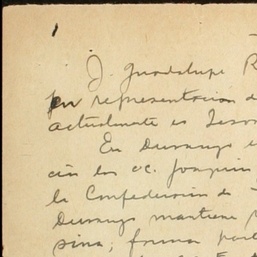 1
J. Guadalupe R
en representacion d
actualmente es Teso
En Durango e
cia los cc. Joaquin
la Confederacion de
Durango mantiene
sina, forma part